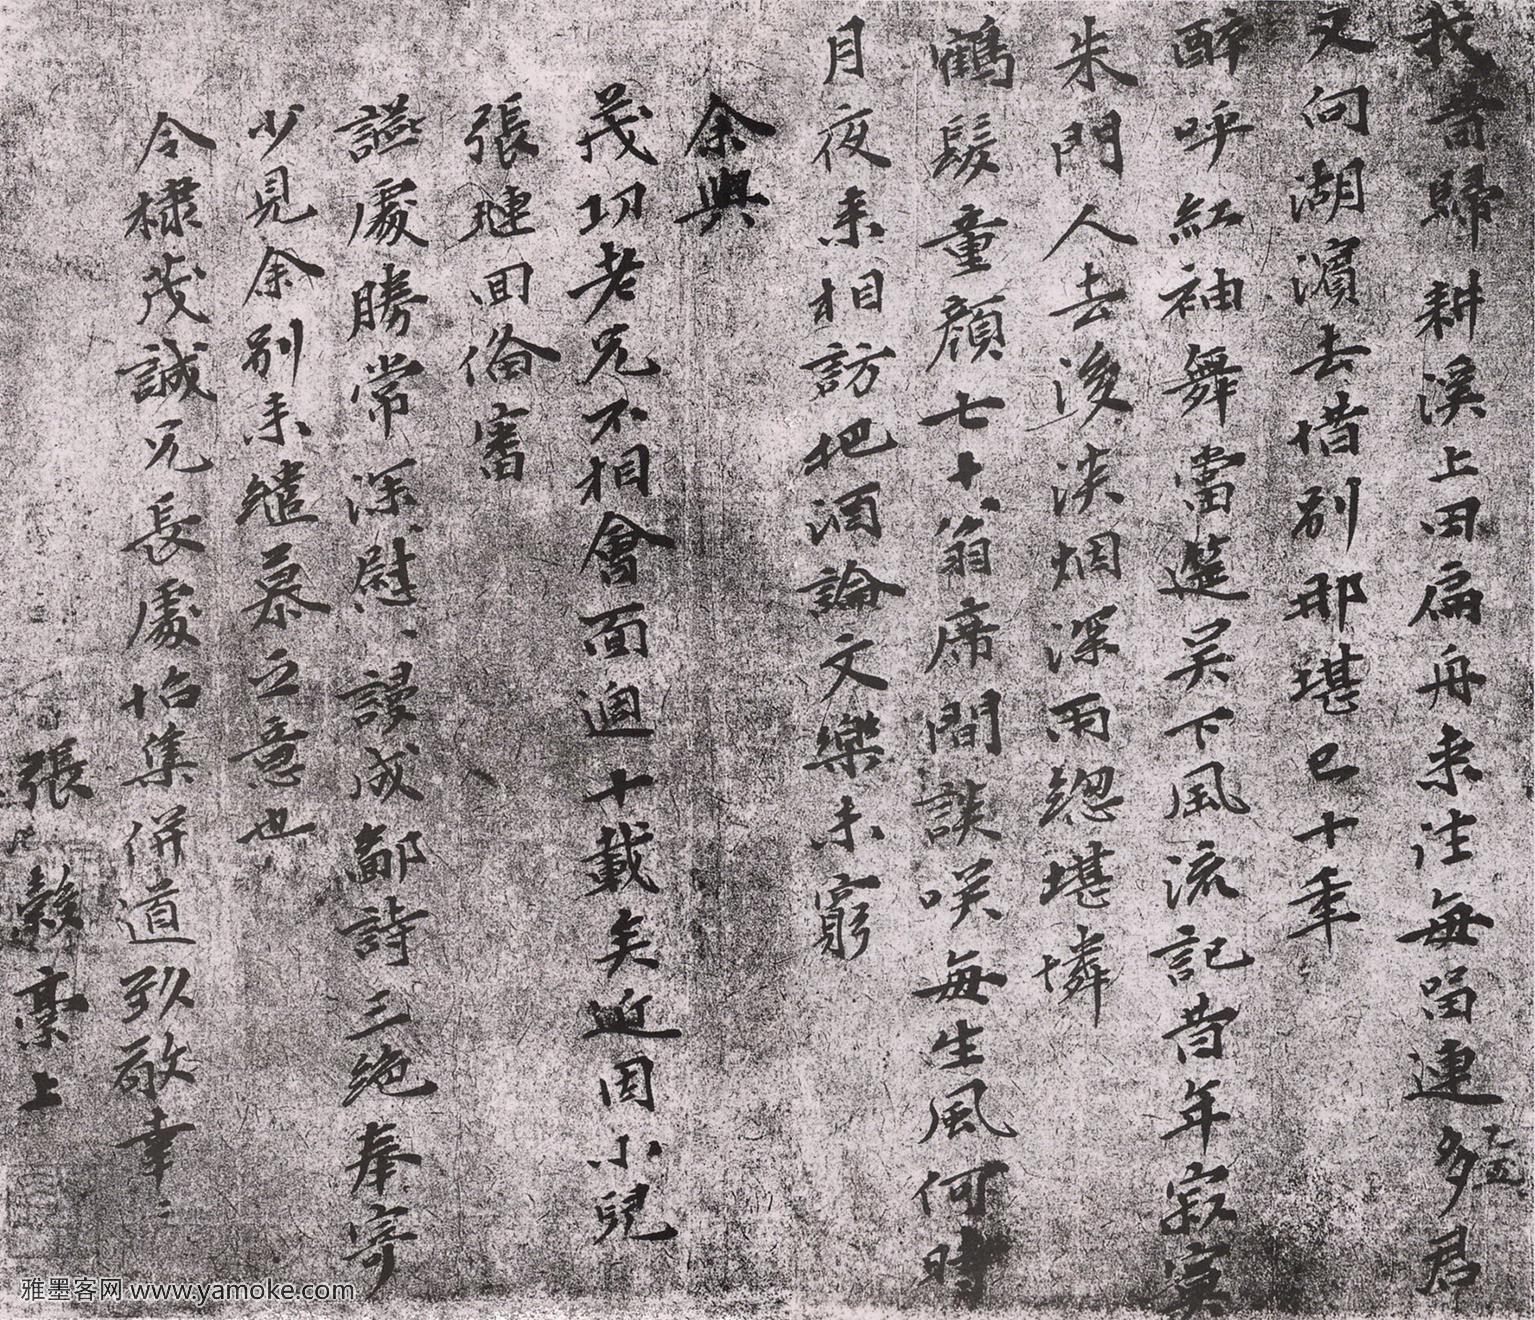 我昔歸耕溪上田扁舟来往每留連多君
又向湖濵去惜别那堪已十年
醉呼紅袖舞當筵吴下風流記昔年寂寞
朱門人去後淡烟深雨緫堪憐
鶴髮童顔七十翁席間談咲每生風何時
月夜来相訪把酒論文樂未窮
余與
茂功老兄不相會面迨十載矣近因小兒
張璉回倫審
謡處勝常深慰謾成鄙詩三絶奉寄
少見余别未繾慕之意也
令棣茂誠兄長處怡集併道致敬幸〻
張縠稾上
雅墨客网 www.yamoke.com